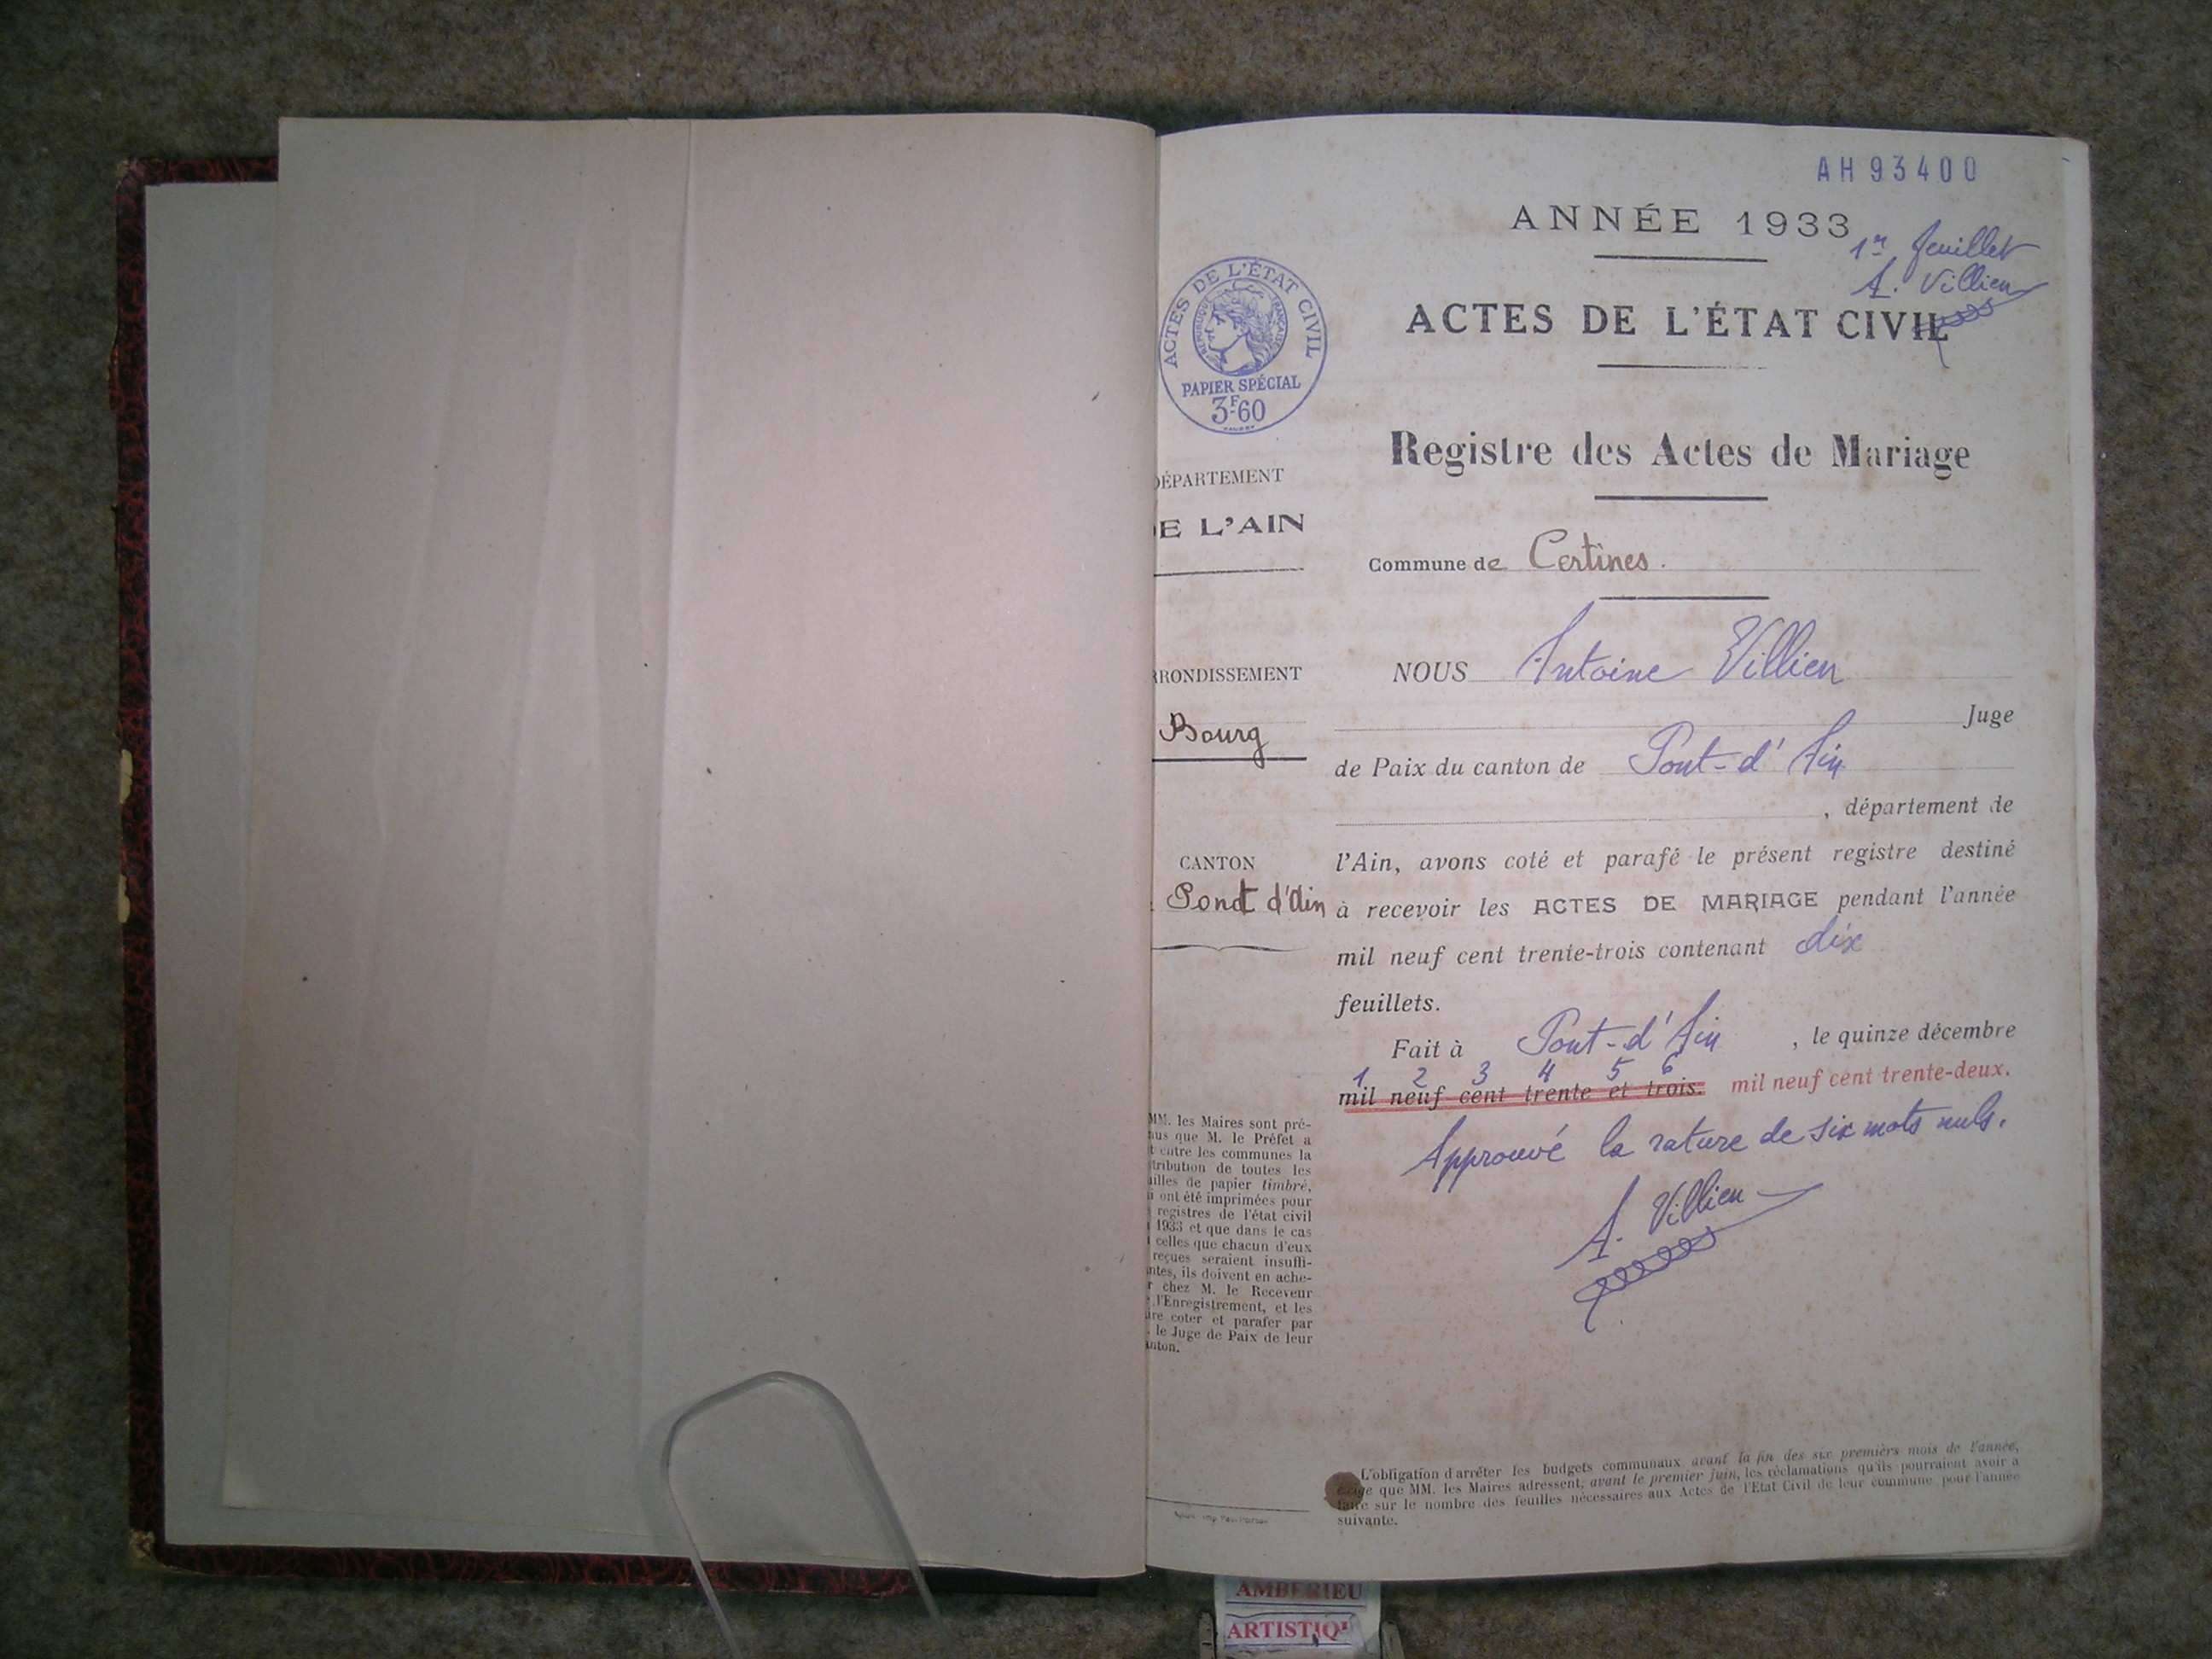 AH 93400
ANNÉE 1933
1er feuillet
A. Villien
ACTES DE L'ÉTAT CIVIL
ACTES DE L'ÉTAT CIVIL
RÉPUBLIQUE FRANÇAISE
PAPIER SPÉCIAL
3F60
Registre des Actes de Mariage
DÉPARTEMENT
DE L'AIN
Commune de Certines.
RRONDISSEMENT
Bourg
CANTON
Pont d'Ain
NOUS Antoine Villien
Juge
de Paix du canton de Pont-d'Ain
, département de
l'Ain, avons coté et parafé le présent registre destiné
à recevoir les ACTES DE MARIAGE pendant l'année
mil neuf cent trente-trois contenant dix
feuillets.
Fait à Pont-d'Ain , le quinze décembre
1 2 3 4 5 6
mil neuf cent trente et trois. mil neuf cent trente-deux.
Approuvé la rature de six mots nuls.
A. Villien
MM. les Maires sont pré-
nus que M. le Préfet a
t entre les communes la
tribution de toutes les
uilles de papier timbré,
i ont été imprimées pour
registres de l'état civil
1933 et que dans le cas
celles que chacun d'eux
reçues seraient insuffi-
ntes, ils doivent en ache-
r chez M. le Receveur
l'Enregistrement, et les
ire coter et parafer par
le Juge de Paix de leur
anton.
L'obligation d'arrêter les budgets communaux avant la fin des six premiers mois de l'année,
exige que MM. les Maires adressent, avant le premier juin, les réclamations qu'ils pourraient avoir à
faire sur le nombre des feuilles nécessaires aux Actes de l'Etat Civil de leur commune pour l'année
suivante.
AMBERIEU
ARTISTIQ